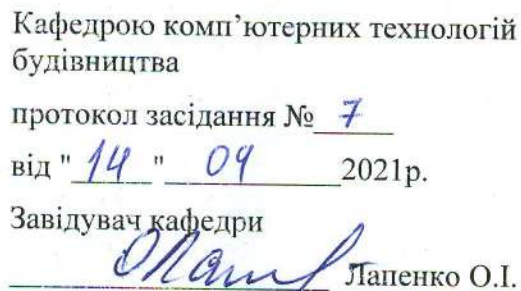 Кафедрою комп’ютерних технологій
будівництва
протокол засідання № 7
від " 14 " 09 2021р.
Завідувач кафедри
Лапенко О.І.